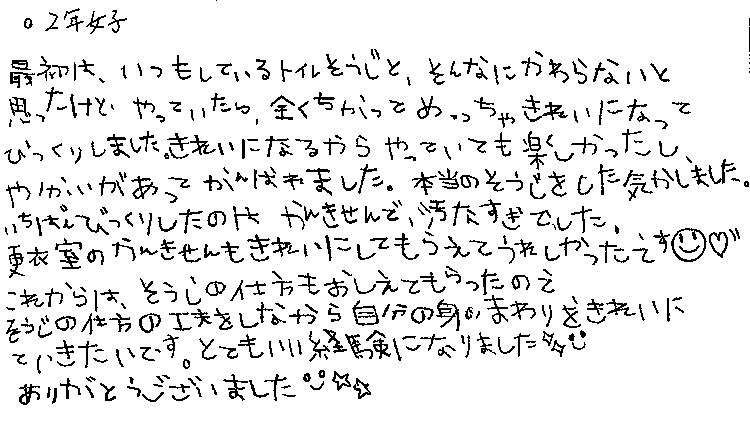 ○ 2年女子
最初は、いつもしているトイレそうじと、そんなにかわらないと
思ったけど、やっていたら、全くちがってめっちゃきれいになって
びっくりしました。きれいになるからやっていても楽しかったし、
やりがいがあってがんばれました。本当のそうじをした気がしました。
いちばんびっくりしたのは かんきせんで、汚なすぎでした。
更衣室のかんきせんもきれいにしてもらえてうれしかったです☺♡
これからは、そうじの仕方もおしえてもらったので
そうじの仕方の工夫をしながら 自分の身のまわりをきれいに
ていきたいです。とてもいい経験になりました☆☆☺
ありがとうございました☺☆☆